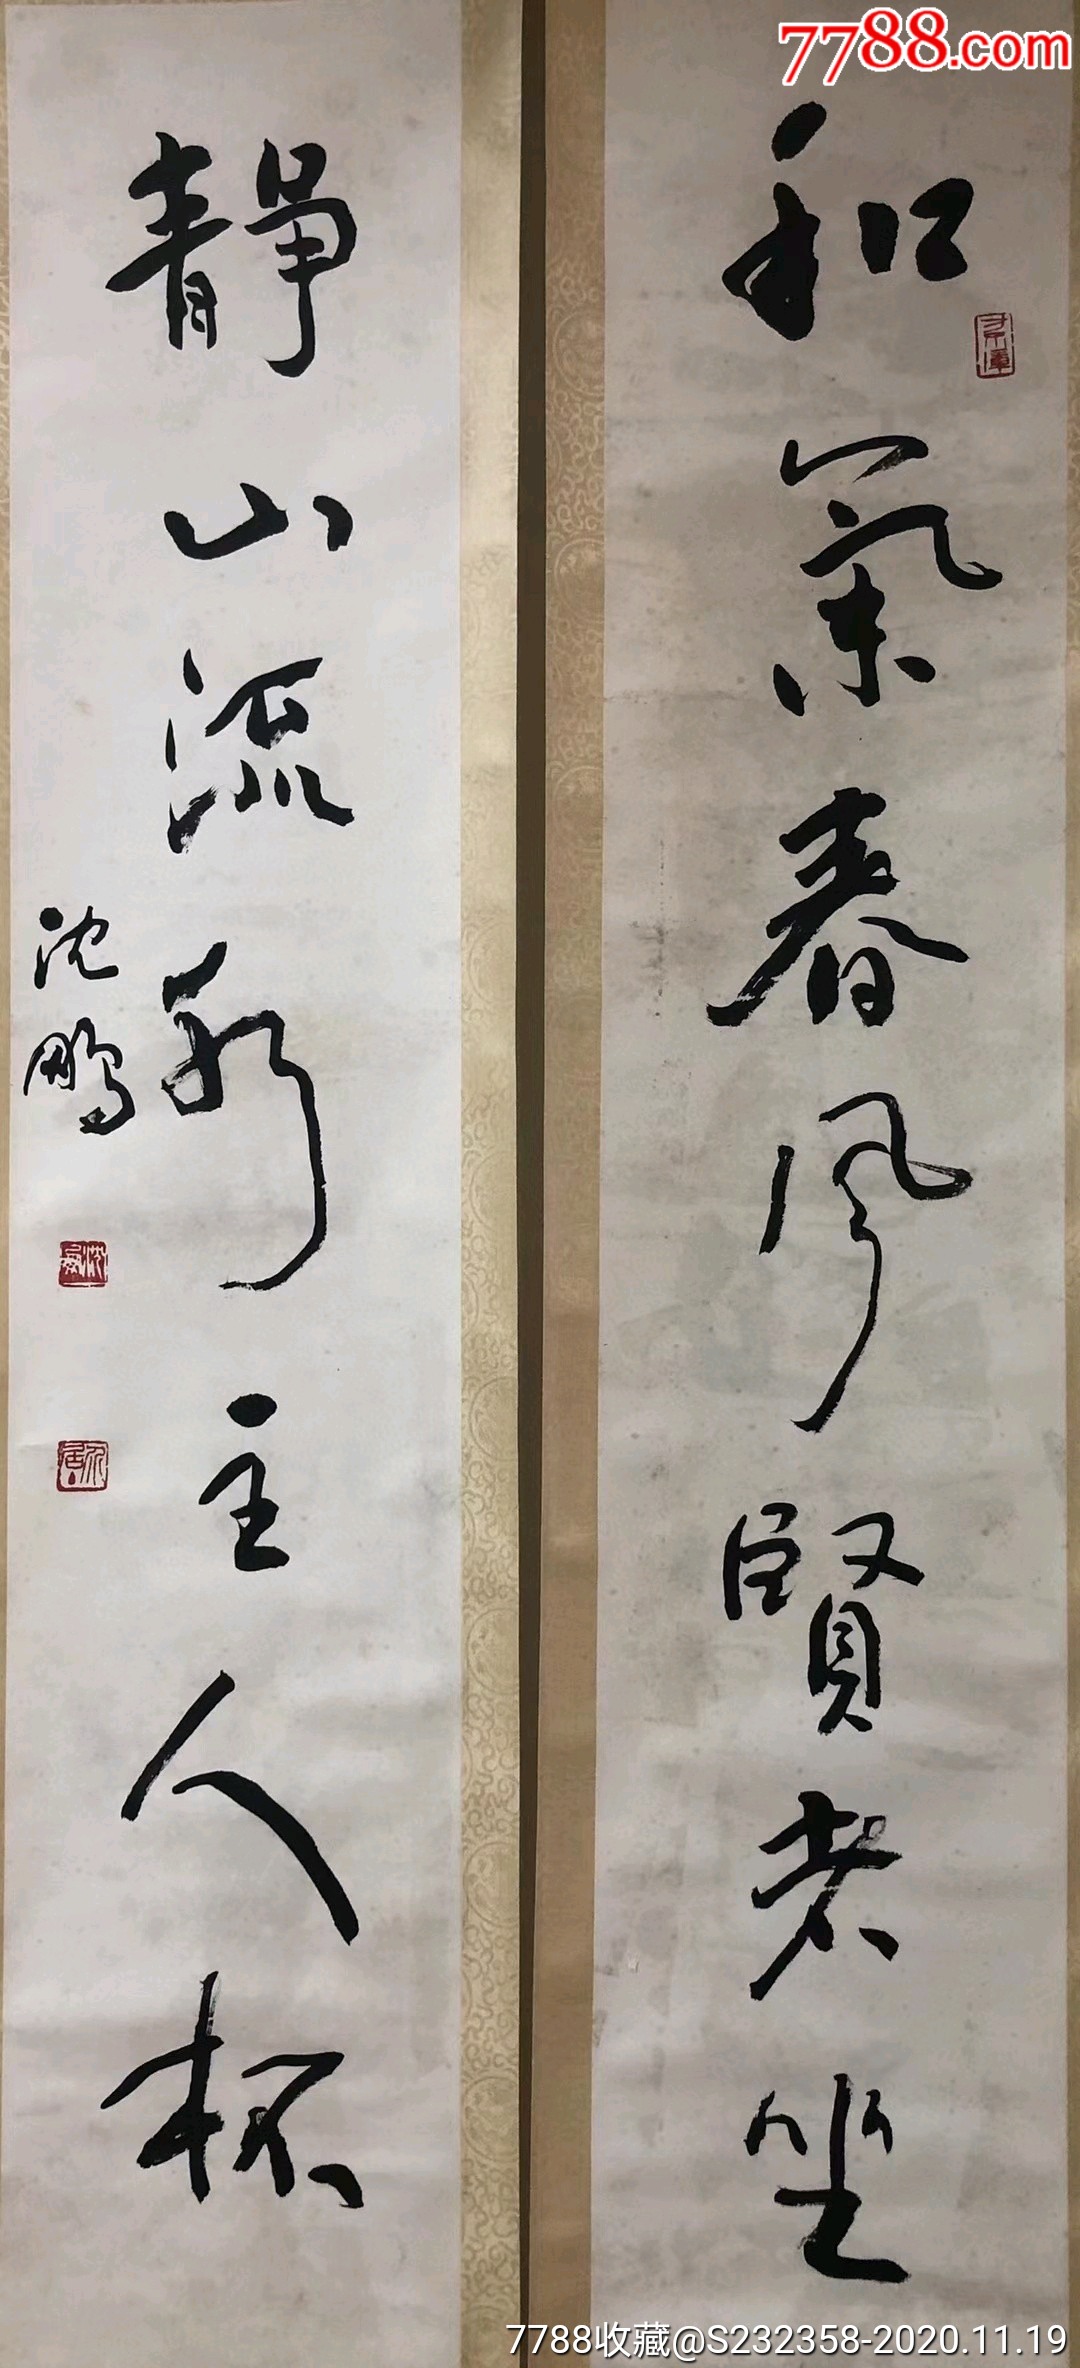 7788.com
和氣春風賢者坐
靜山流水主人杯
沈鵬
7788收藏@S232358-2020.11.19